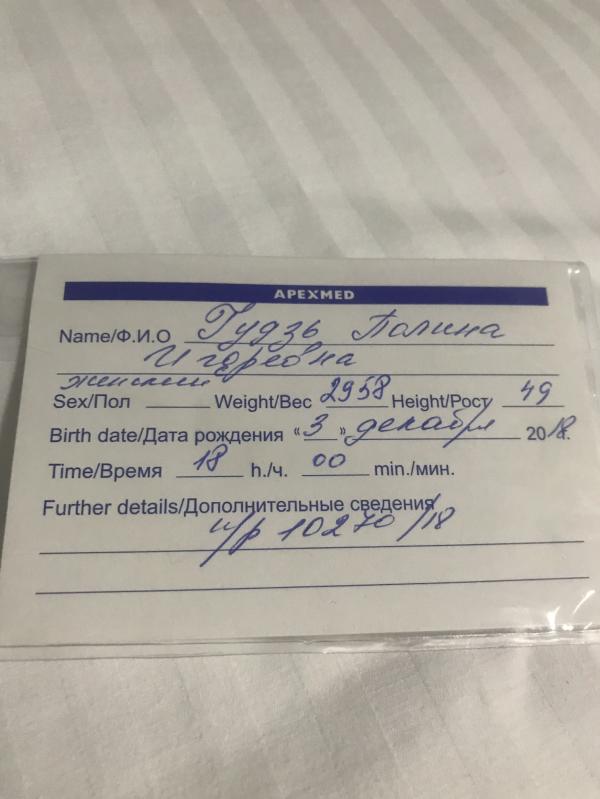 APEXMED
Name/Ф.И.О Гудзь Полина
Игоревна
женский
Sex/Пол Weight/Вес 2958 Height/Рост 49
Birth date/Дата рождения «3» декабря 2018г.
Time/Время 18 h./ч. 00 min./мин.
Further details/Дополнительные сведения
и/р 10270/18